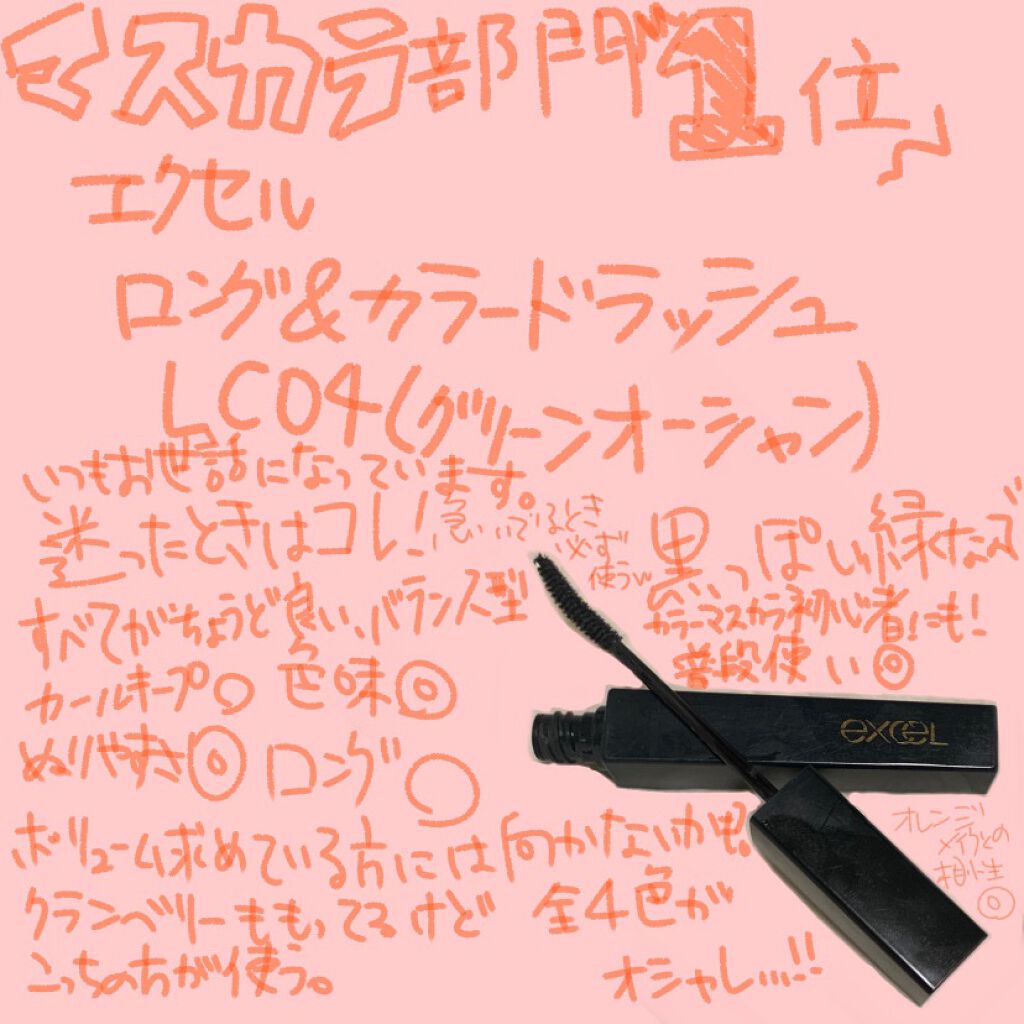 マスカラ部門1位
エクセル
ロング&カラードラッシュ
LC04(グリーンオーシャン)
いつもお世話になっています。
迷ったときはコレ!
急いでるとき
必ず
使うw
すべてがちょうど良い、バランス型
カールキープ○ 色味◎
ぬりやすさ◎ ロング○
黒っぽい緑なので
カラーマスカラ初心者にも!
普段使い◎
excel
オレンジ
メイクとの
相性
◎
ボリューム求めている方には向かないかも?
クランベリーももってるけど
こっちの方が使う。
全4色が
オシャレ…!!